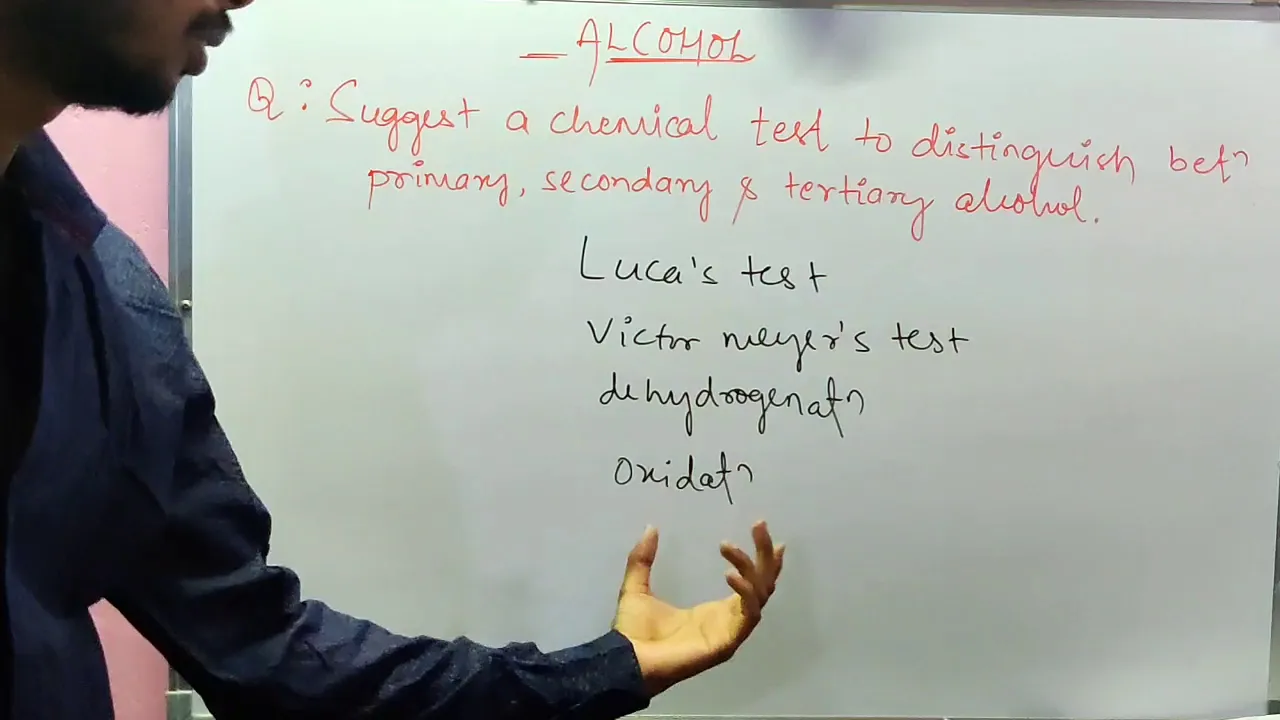 — ALCOHOL
Q: Suggest a chemical test to distinguish betn
primary, secondary & tertiary alcohol.
Luca's test
Victor meyer's test
dehydrogenatn
Oxidatn